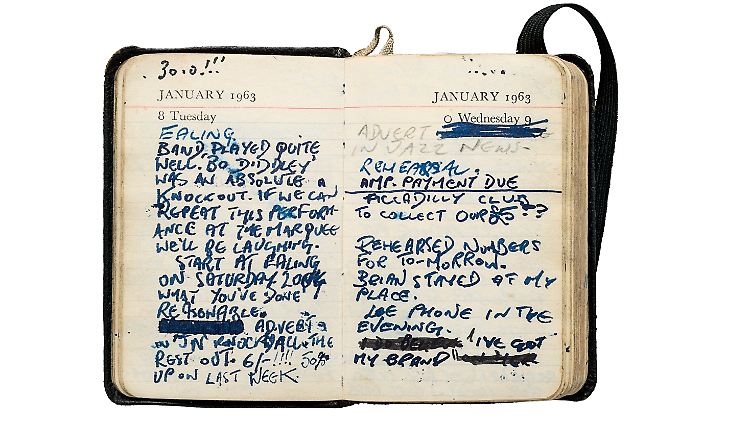 30.0!!!
JANUARY 1963
8 Tuesday
EALING
BAND PLAYED QUITE
WELL. BO DIDDLEY
WAS AN ABSOLUTE
KNOCKOUT. IF WE CAN
REPEAT THIS PERFORM-
ANCE AT THE MARQUEE
WE'LL BE LAUGHING.
START AT EALING
ON SATURDAY
WHAT YOU'VE DONE
REASONABLE.
ADVERT
IN "JN" KNOCK ALL THE
REST OUT. 6/-!!!! 50%
UP ON LAST WEEK.
JANUARY 1963
Wednesday 9
ADVERT
IN JAZZ NEWS-
REHEARSAL.
AMP. PAYMENT DUE
PICCADILLY CLUB
TO COLLECT OUR ??
REHEARSED NUMBERS
FOR TO-MORROW.
BRIAN STAYED AT MY
PLACE.
PHONE IN THE
EVENING.
"I'VE GOT
MY BRAND"